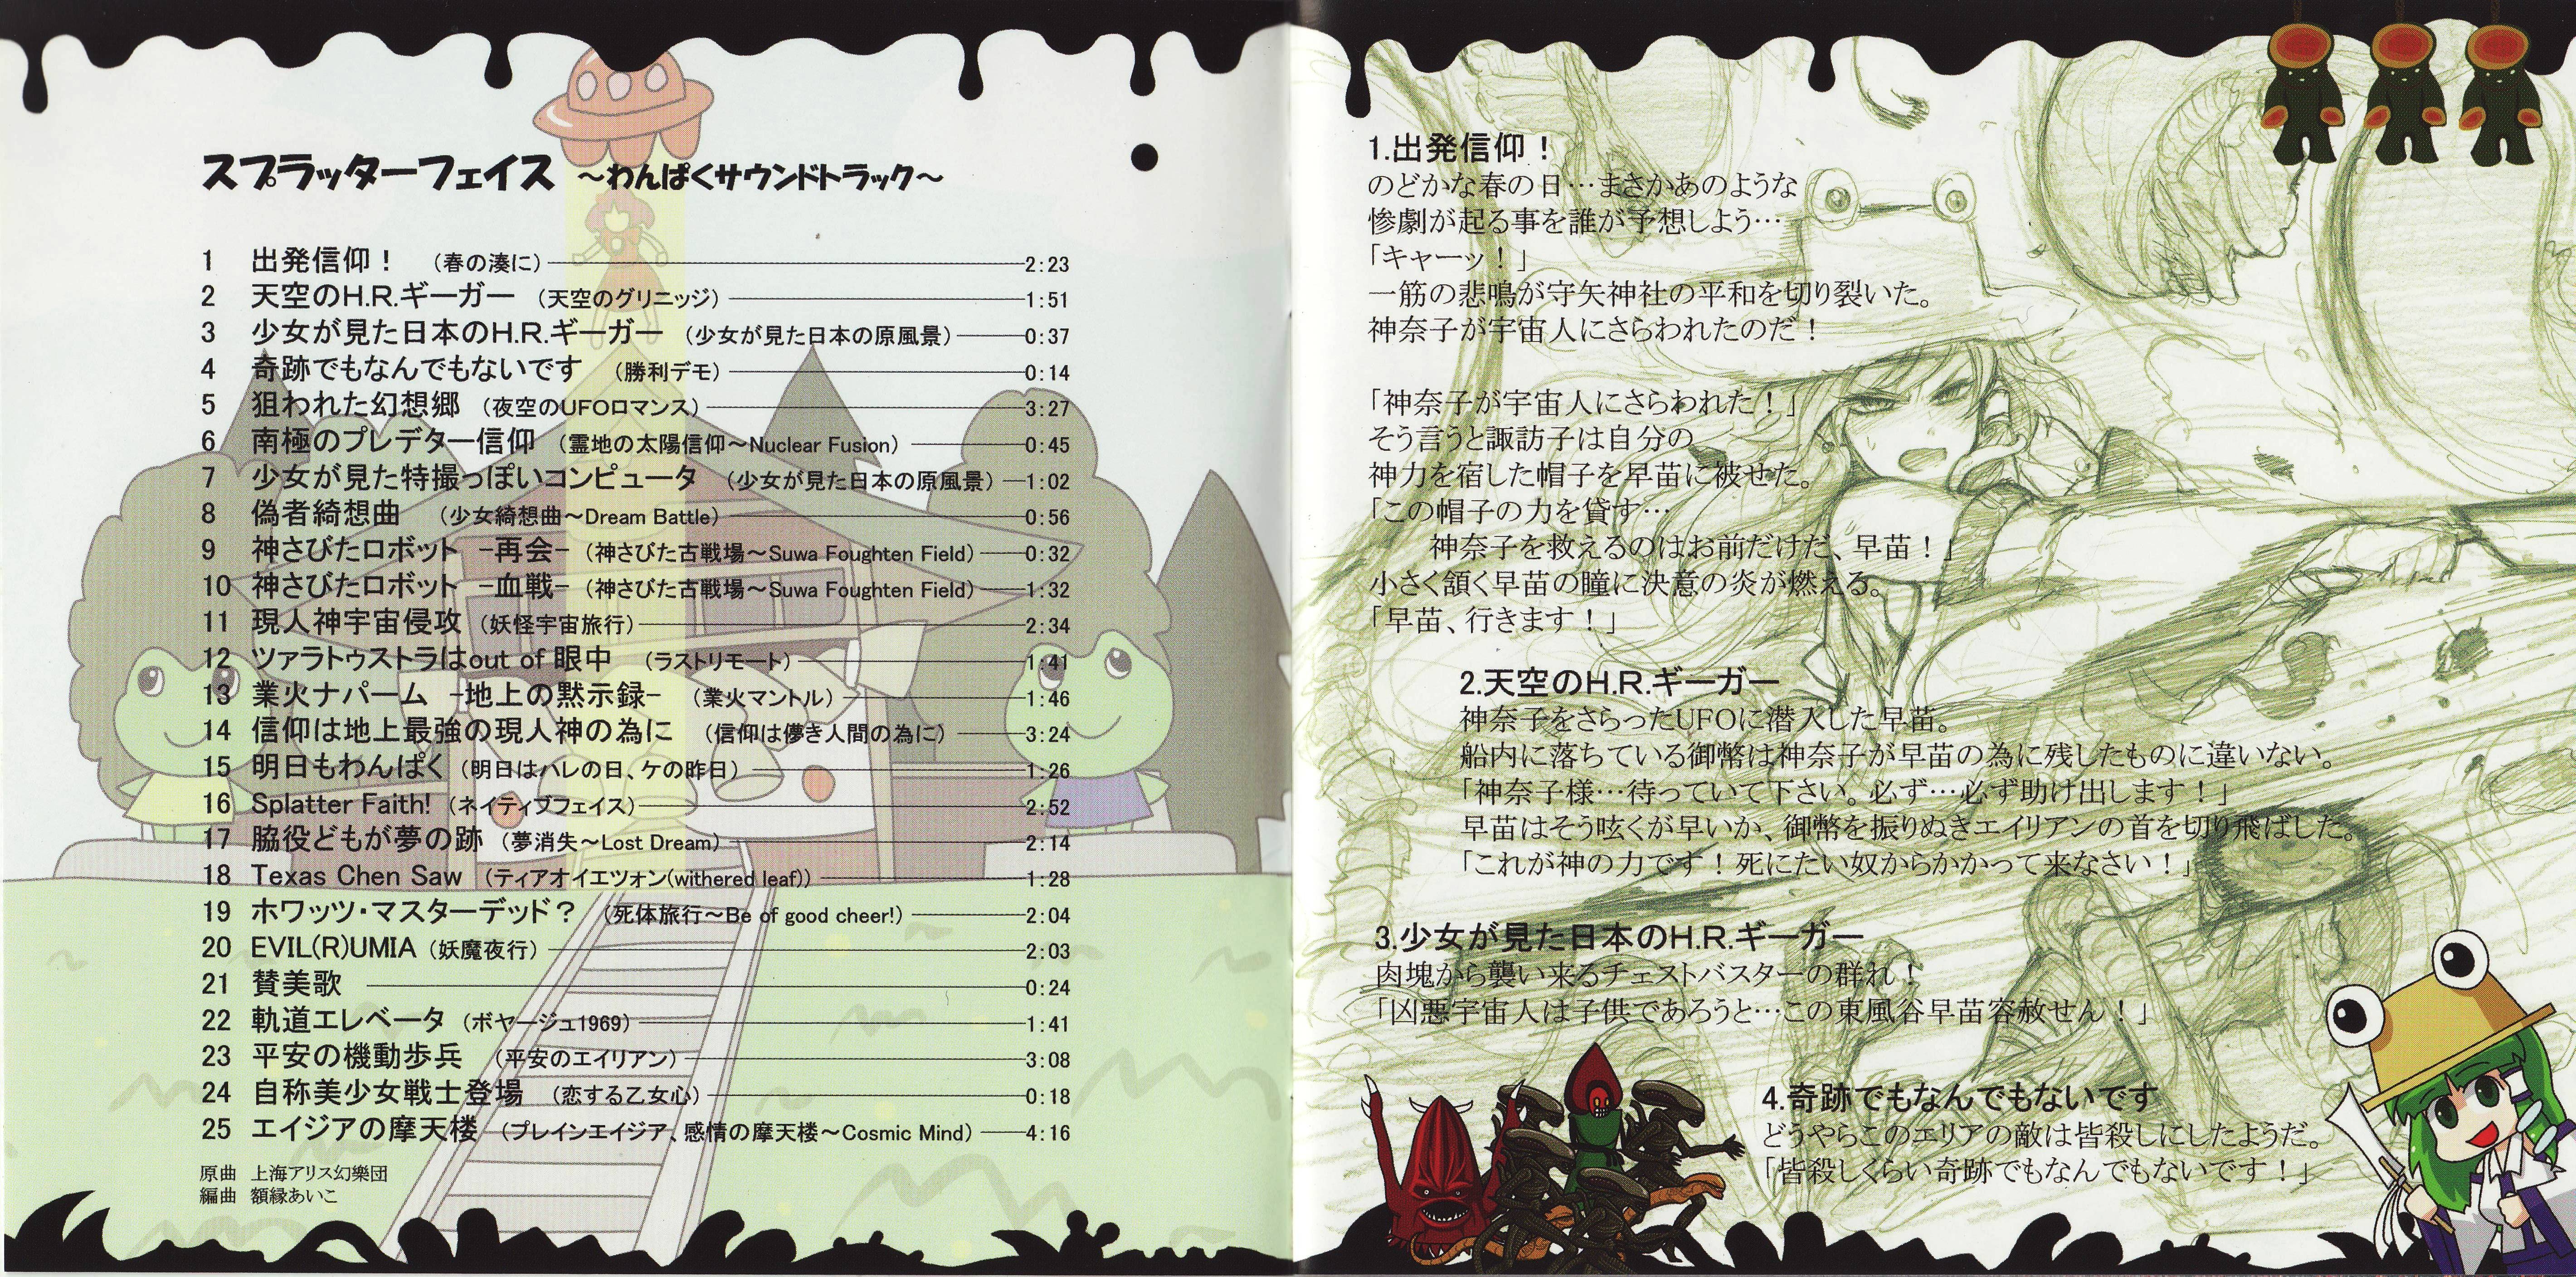 スプラッターフェイス ～わんぱくサウンドトラック～
1 出発信仰！ （春の湊に） 2:23
2 天空のH.R.ギーガー （天空のグリニッジ） 1:51
3 少女が見た日本のH.R.ギーガー （少女が見た日本の原風景） 0:37
4 奇跡でもなんでもないです （勝利デモ） 0:14
5 狙われた幻想郷 （夜空のUFOロマンス） 3:27
6 南極のプレデター信仰 （霊地の太陽信仰～Nuclear Fusion） 0:45
7 少女が見た特撮っぽいコンピュータ （少女が見た日本の原風景） 1:02
8 偽者綺想曲 （少女綺想曲～Dream Battle） 0:56
9 神さびたロボット -再会- （神さびた古戦場～Suwa Foughten Field） 0:32
10 神さびたロボット -血戦- （神さびた古戦場～Suwa Foughten Field） 1:32
11 現人神宇宙侵攻 （妖怪宇宙旅行） 2:34
12 ツァラトゥストラはout of 眼中 （ラストリモート） 1:41
13 業火ナパーム -地上の黙示録- （業火マントル） 1:46
14 信仰は地上最強の現人神の為に （信仰は儚き人間の為に） 3:24
15 明日もわんぱく （明日はハレの日、ケの昨日） 1:26
16 Splatter Faith! （ネイティブフェイス） 2:52
17 脇役どもが夢の跡 （夢消失～Lost Dream） 2:14
18 Texas Chen Saw （ティアオイエツォン(withered leaf)） 1:28
19 ホワッツ・マスターデッド？ （死体旅行～Be of good cheer!） 2:04
20 EVIL(R)UMIA （妖魔夜行） 2:03
21 賛美歌 0:24
22 軌道エレベータ （ボヤージュ1969） 1:41
23 平安の機動歩兵 （平安のエイリアン） 3:08
24 自称美少女戦士登場 （恋する乙女心） 0:18
25 エイジアの摩天楼 （プレインエイジア、感情の摩天楼～Cosmic Mind） 4:16
原曲 上海アリス幻樂団
編曲 額縁あいこ
1.出発信仰！
のどかな春の日…まさかあのような
惨劇が起る事を誰が予想しよう…
「キャーッ！」
一筋の悲鳴が守矢神社の平和を切り裂いた。
神奈子が宇宙人にさらわれたのだ！
「神奈子が宇宙人にさらわれた！」
そう言うと諏訪子は自分の
神力を宿した帽子を早苗に被せた。
「この帽子の力を貸す…
神奈子を救えるのはお前だけだ、早苗！」
小さく頷く早苗の瞳に決意の炎が燃える。
「早苗、行きます！」
2.天空のH.R.ギーガー
神奈子をさらったUFOに潜入した早苗。
船内に落ちている御幣は神奈子が早苗の為に残したものに違いない。
「神奈子様…待っていて下さい。必ず…必ず助け出します！」
早苗はそう呟くが早いか、御幣を振りぬきエイリアンの首を切り飛ばした。
「これが神の力です！死にたい奴からかかって来なさい！」
3.少女が見た日本のH.R.ギーガー
肉塊から襲い来るチェストバスターの群れ！
「凶悪宇宙人は子供であろうと…この東風谷早苗容赦せん！」
4.奇跡でもなんでもないです
どうやらこのエリアの敵は皆殺しにしたようだ。
「皆殺しくらい奇跡でもなんでもないです！」